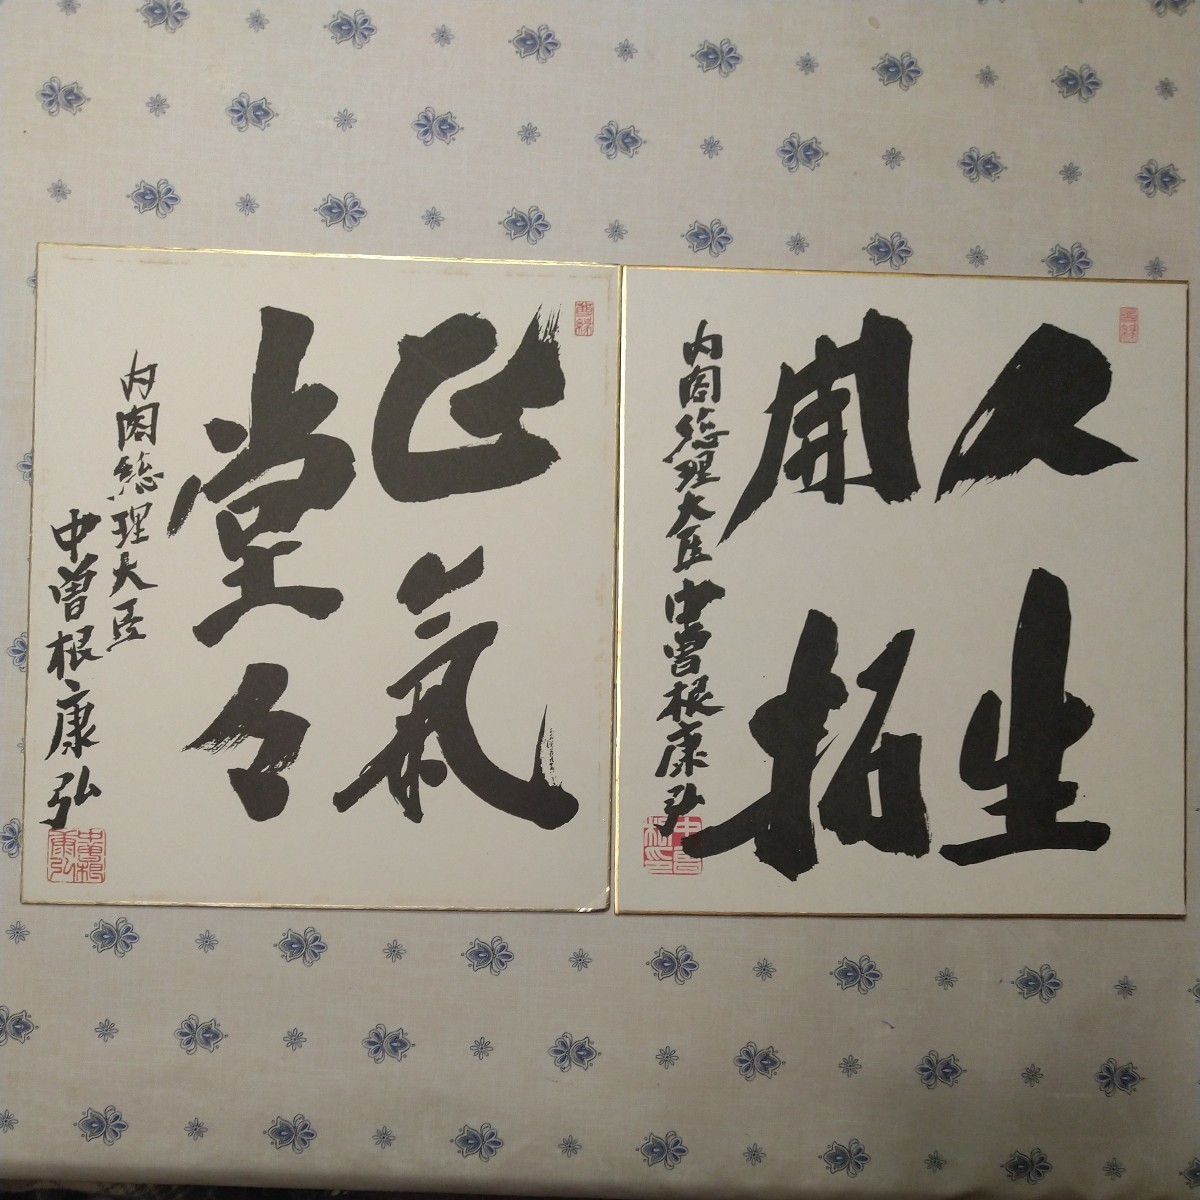 人生
開拓
内閣総理大臣中曽根康弘
正氣
堂々
内閣総理大臣
中曽根康弘
中曽根
康弘